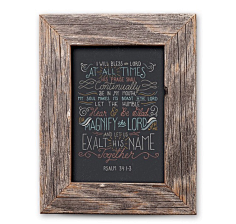 I WILL BLESS the LORD
AT ALL TIMES
HIS PRAISE SHALL
Continually
BE IN MY MOUTH.
MY SOUL MAKES ITS BOAST IN the LORD
LET THE HUMBLE
Hear & Be Glad
MAGNIFY the LORD
with me
AND LET US
EXALT HIS NAME
Together
PSALM 34:1-3